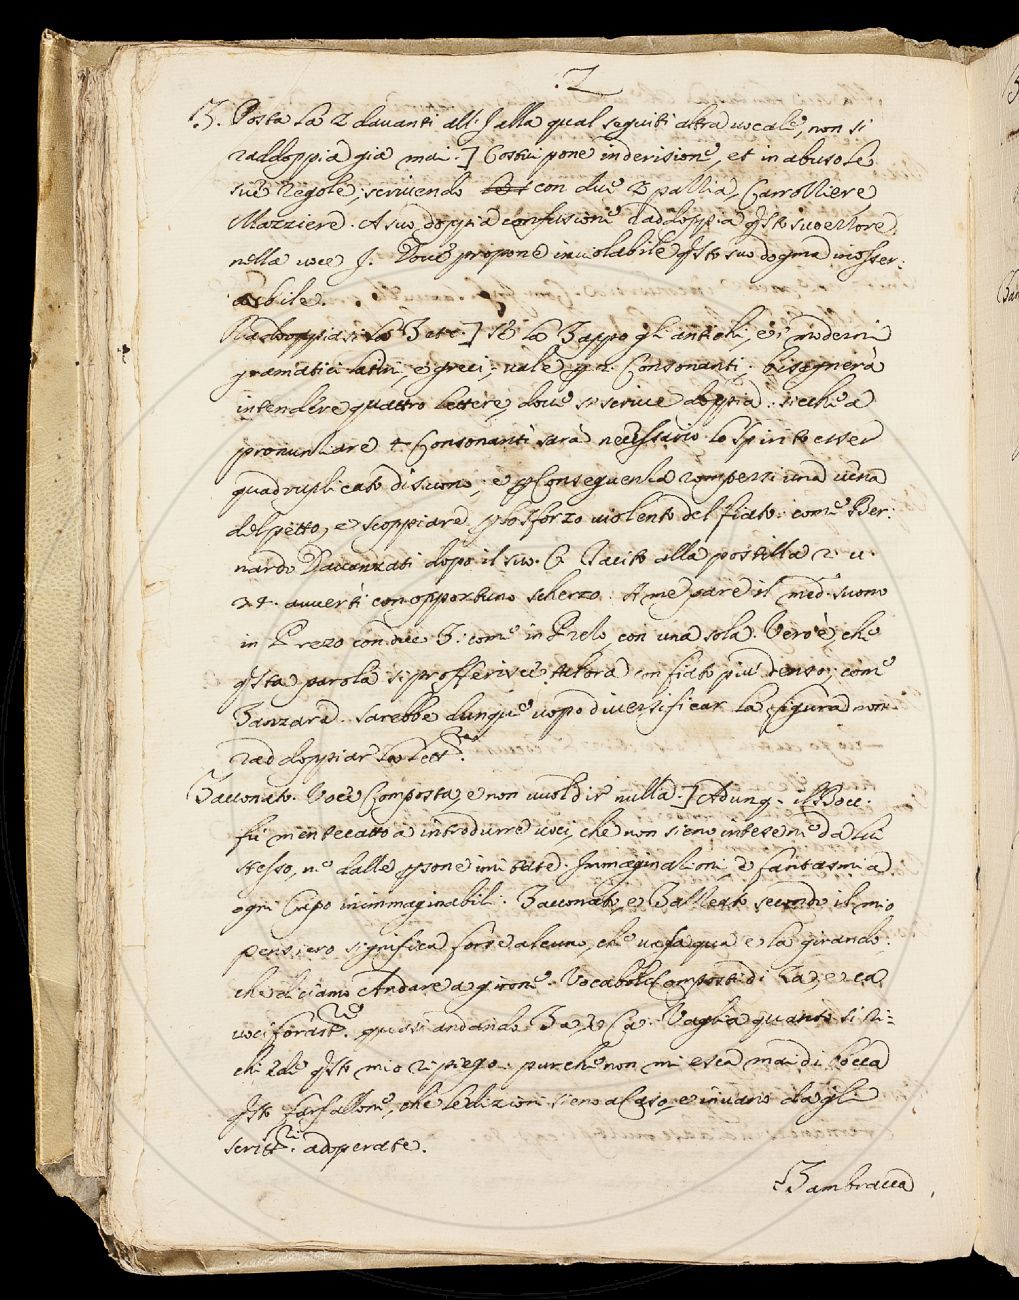 .Z
Z. Posta la Z davanti all' J alla qual seguiti altra vocale, non si
raddoppia gia mai.] Costui pone in derisione, et in abuso le
sue regole, scrivendo con due Z pazzia, Carrozziere,
Mazziere. A suo doppia confusione raddoppia qsto suo errore
nella voce J. Dove propone inviolabile qsto suo dogma inosser:
abile.
Raddoppiasi la Z etc.] Se la Z appo gli antichi, e i moderni
gramatici latini, e greci; vale p 2. Consonanti; bisognerà
intendere quattro lettere, dove si scrive doppia. sicche a
pronuntiare 4 Consonanti sarà necessario lo spirito esser
quadruplicato di suono; e p Conseguenza rompersi una vena
del petto, e scoppiare p lo sforzo violento del fiato: come Ber:
nardo Davanzati dopo il suo C. Tacito alla postilla 2. u.
24. avverti con opportuno scherzo. A me pare il med.º suono
in Prezo con due Z. come in Prelo con una sola. Vero è, che
qsta parola si profferisce talora con fiato più denso; come
Zanzara. Sarebbe dunque uopo diversificar la figura, non
raddoppiar la lettra.
Zacconato. Voce Composta, e non vuol dir nulla.] Adunq. il Bocc.
fù mentecatto a introdurre voci, che non sieno intese ne da lui
stesso, ne dalle psone imitate. Immaginationi, e fantasmi a
ogni Crepo inimmaginabili. Zacconato, e secondo il mio
pensiero significa forse alcuno, che va fa qua e la girando.
che diciamo Andare a girone. Vocaboli Composti di Za, e ca
voci forastre. quasi andando Za, e Ca. Vaglia quanto si ri:
chiede qsto mio ripiego. purche non mi esca mai di bocca
qsto farfallone, che le dizioni sieno a Caso, e invano dagli
scrittri adoperate.
Zambracca